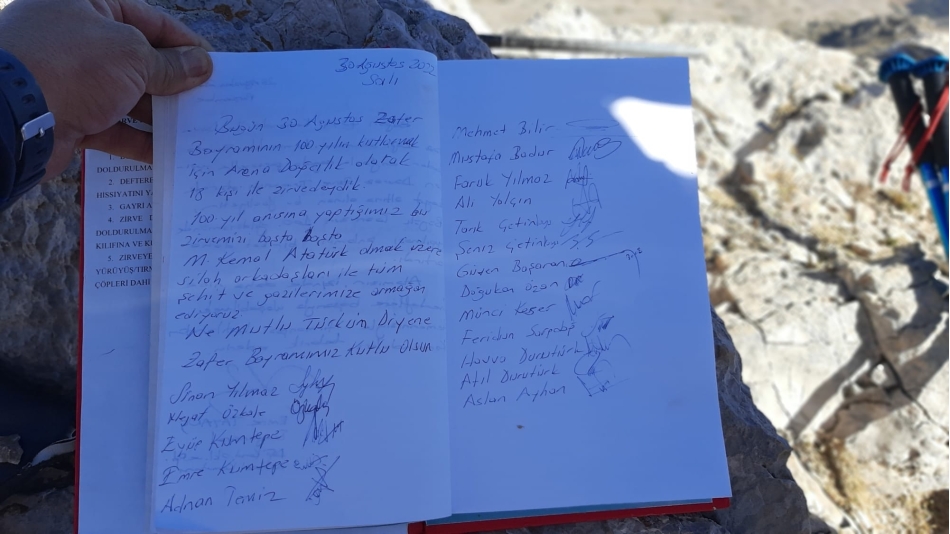 30 Ağustos 2022
Salı
Bugün 30 Ağustos Zafer
Bayramının 100 yılın kutlamak
için Arena Dağcılık olarak
18 kişi ile zirvedeydik.
100 yıl anısına yaptığımız bu
zirvemizi başta başta
M. Kemal Atatürk olmak üzere
silah arkadaşları ile tüm
şehit ve gazilerimize armağan
ediyoruz
Ne Mutlu Türküm Diyene
Zafer Bayramımız Kutlu Olsun
Sinan Yılmaz
Özkale
Eyüp Kumtepe
Emre Kumtepe
Adnan Temiz
Mehmet Bilir
Mustafa Badur
Faruk Yılmaz
Ali Yalçın
Tarık Çetinbaş
Şeniz Çetinbaş
Güven Başaran
Doğukan Ozan
Münci Keser
Feridun
Havva Durutürk
Atıl Durutürk
Aslan Ayhan
1.
DOLDURULMA
2. DEFTER
HİSSİYATINI YA
3. GAYRİ A
4. ZİRVE D
DOLDURULMA
KILIFINA VE K
5. ZİRVEYE
YÜRÜYÜŞ/TIRM
ÇÖPLERİ DAHİ